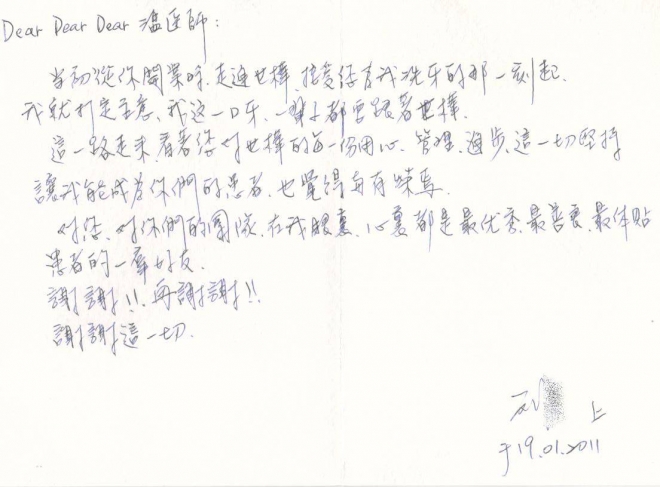 Dear Dear Dear 溫醫師:
當初從你開業時.走進世樺.接受您為我洗牙的那一刻起.
我就打定主意.我这一口牙.一輩子都要跟著世樺.
這一路走來.看著您对世樺的每一份用心.管理.進步.這一切堅持
讓我能成為你們的患者.也覺得与有榮焉.
对您.对你們的團隊.在我眼裏.心裏都是最优秀.最善良.最体貼
患者的一羣好友.
謝謝!!.再謝謝!!.
謝謝這一切.
上
于19.01.2011